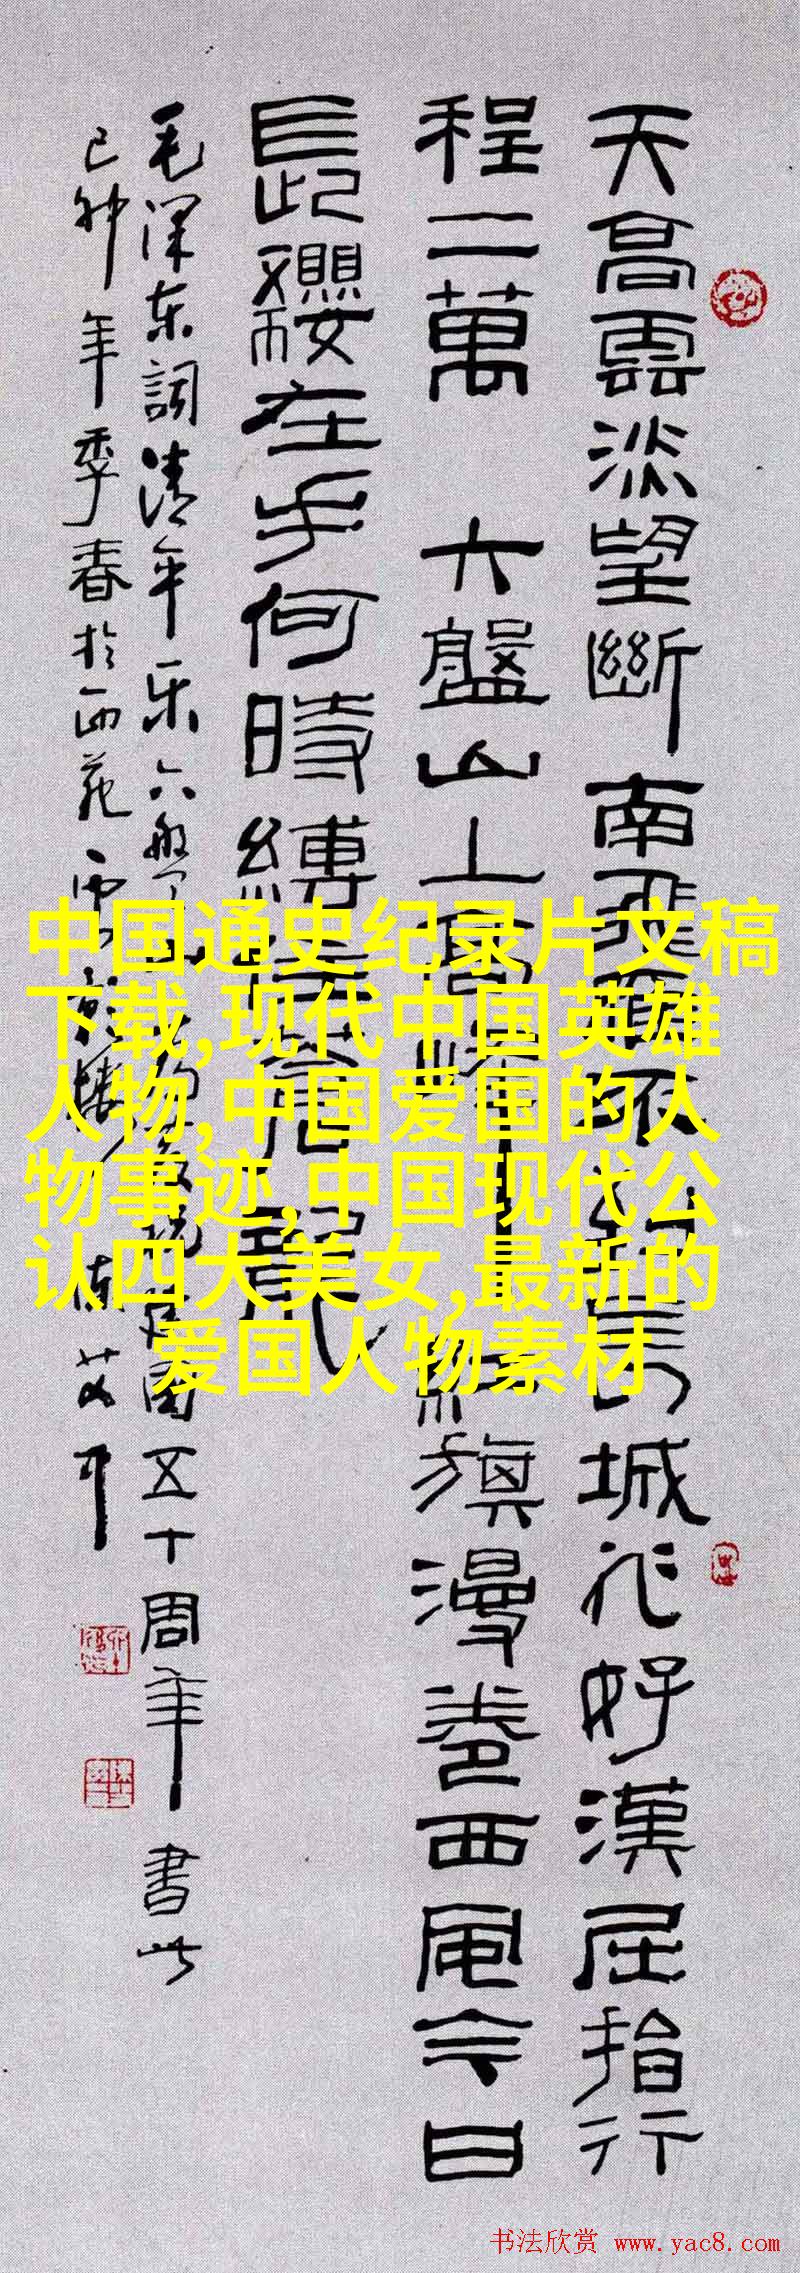 天高雲淡望斷南飛雁不到長城非好漢屈指行
程二萬 六盤山上高峰紅旗漫卷西風今日
長纓在手何時縛住蒼龍
毛泽东詞清平乐六盤山国五十周年書此
己卯年季春於西苑
中国通史纪录片文稿
下载,现代中国英雄
人物,中国爱国的人
物事迹,中国现代公
认四大美女,最新的
爱国人物素材
书法欣赏 www.yac8.com